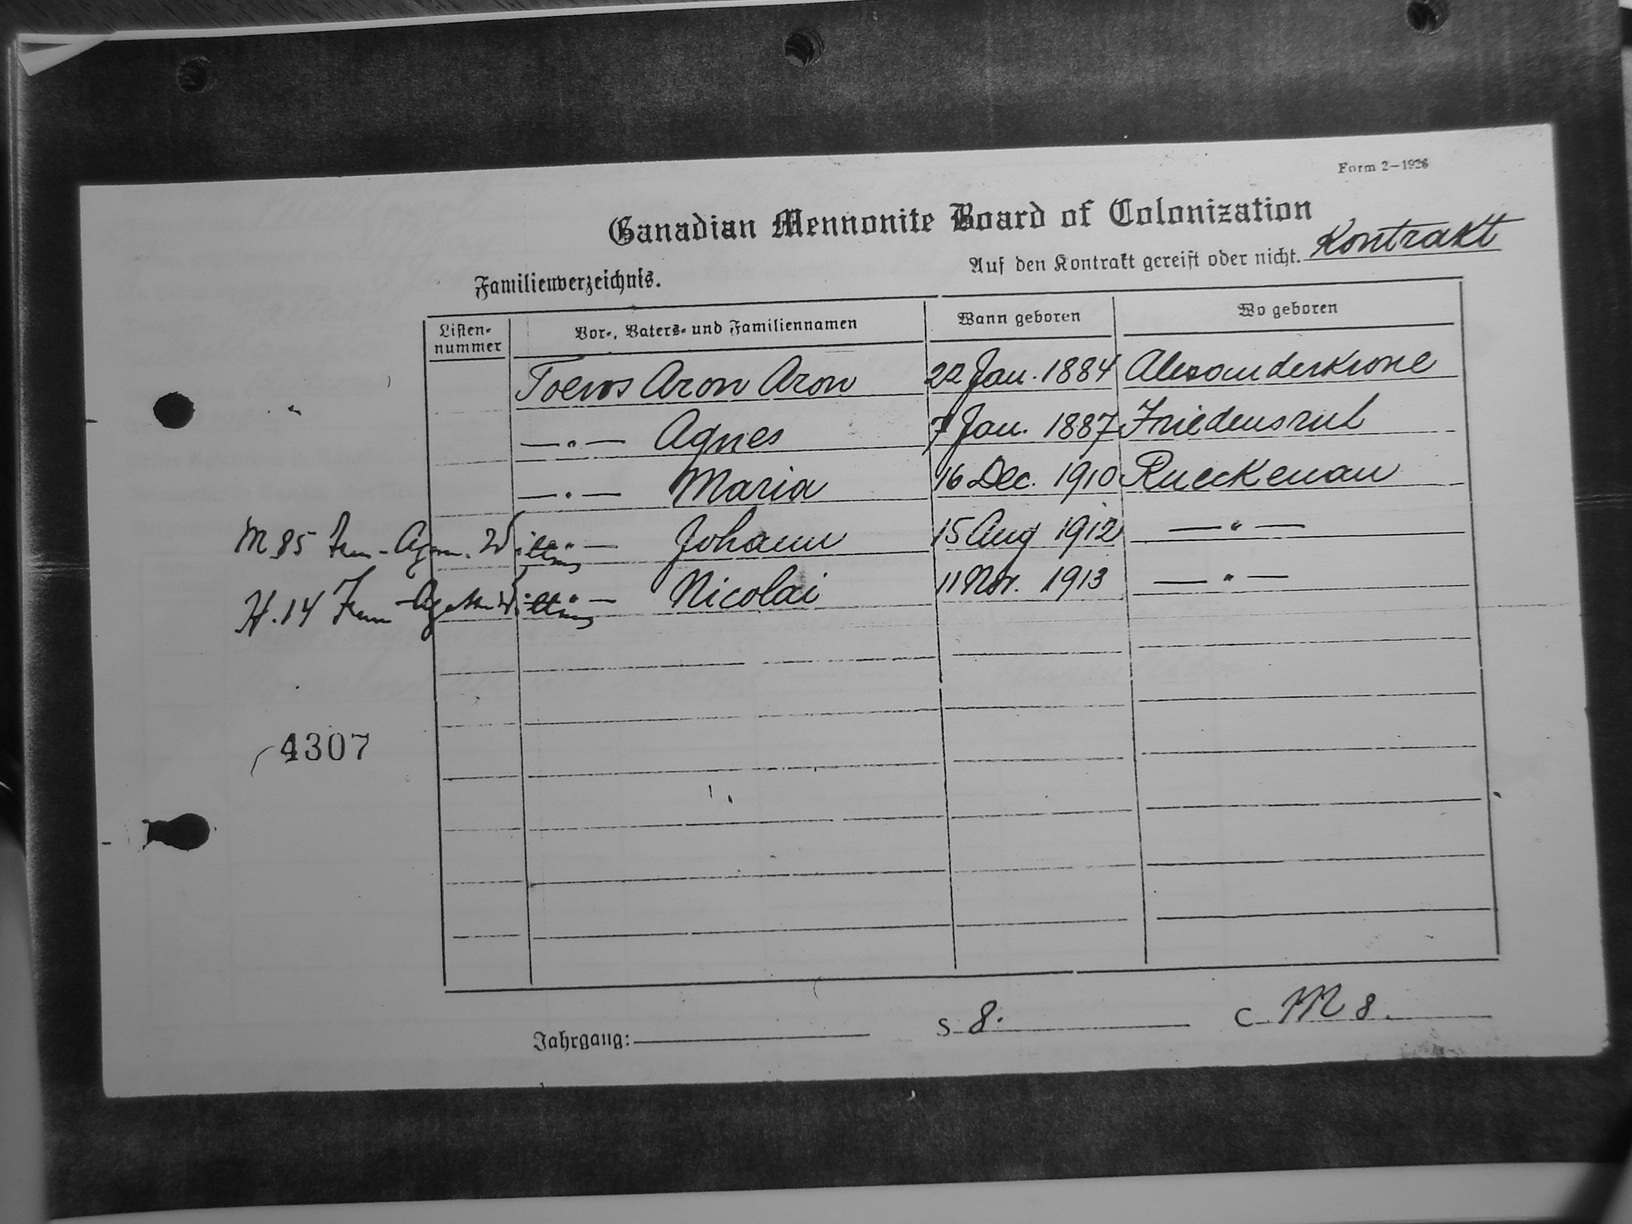 Form 2—1926
Canadian Mennonite Board of Colonization
Auf den Kontrakt gereist oder nicht. Kontrakt
Familienverzeichnis.
Listen-nummer Vor-, Vaters- und Familiennamen Wann geboren Wo geboren
Toews Aron Aron 22 Jan. 1884 Alexanderkrone
—"— Agnes 7 Jan. 1887 Friedensruh
—"— Maria 16 Dec. 1910 Rueckenau
M 85 —"— Johann 15 Aug 1912 —"—
H. 14 —"— Nicolai 11 Nov. 1913 —"—
4307
Jahrgang: S 8. C M 8.